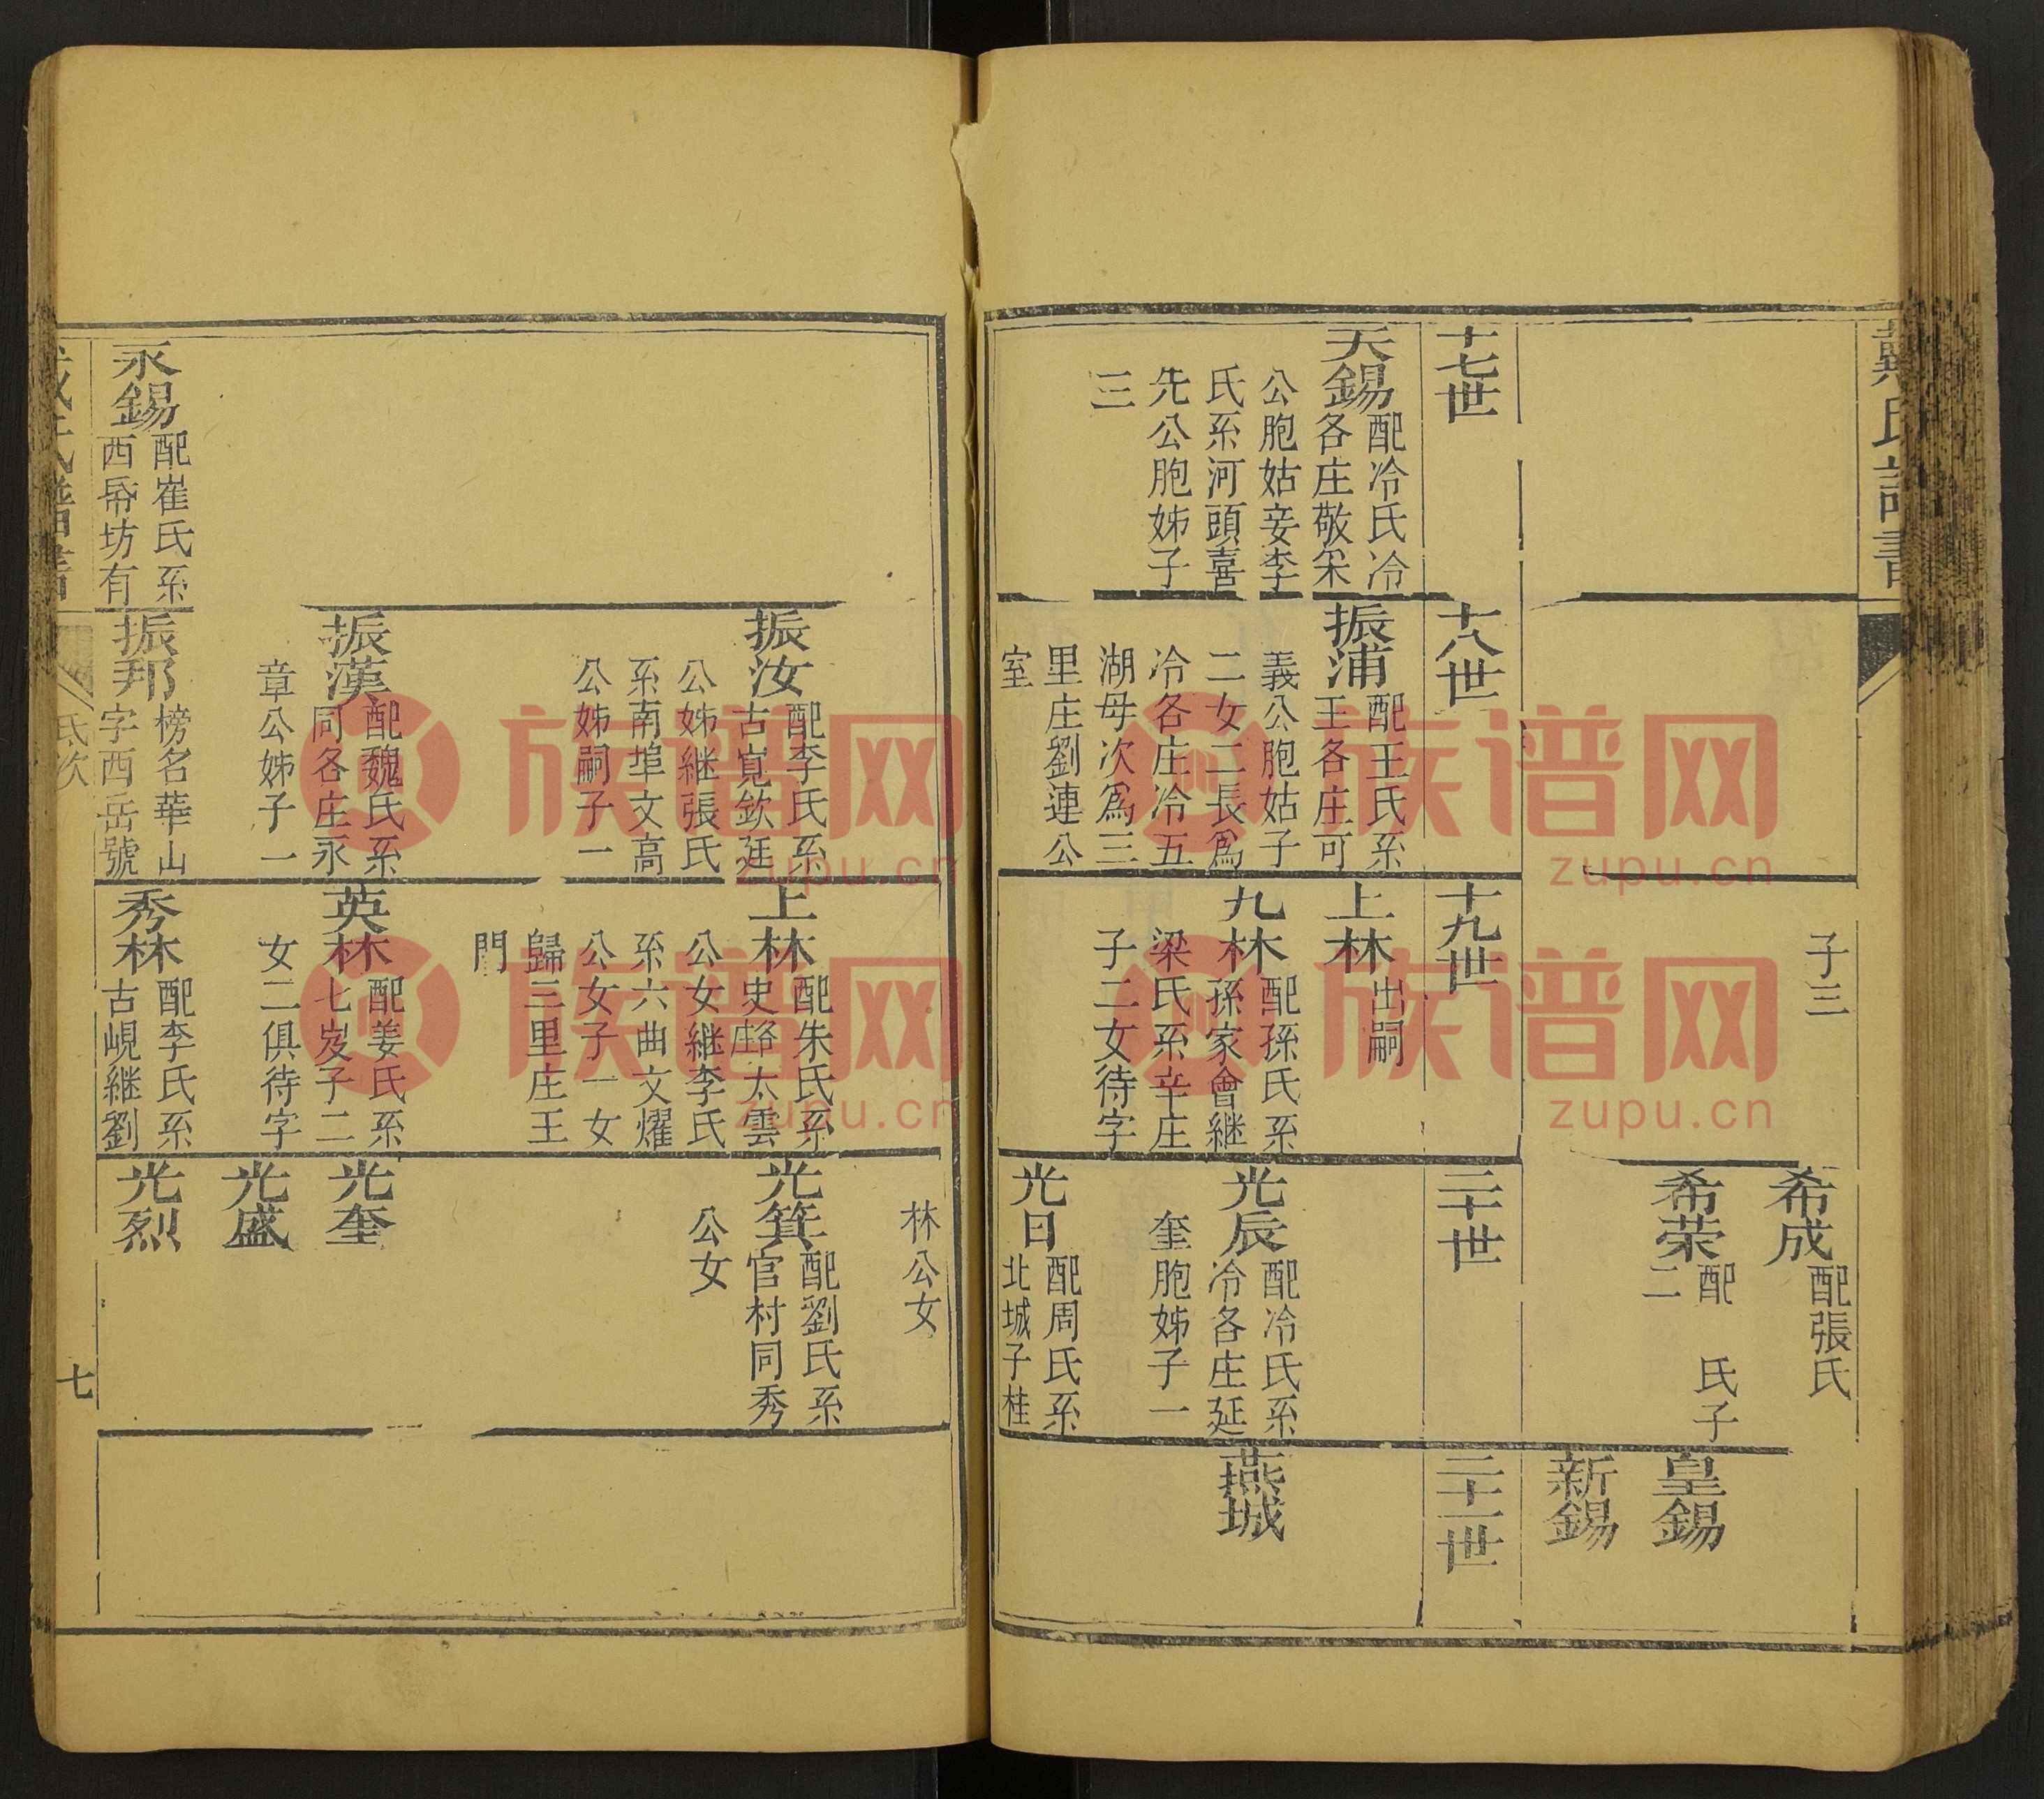 戴氏譜書
子三
希成
配張氏
希荣
配　氏子
二
皇錫
新錫
十七世
十八世
十九世
二十世
二十一世
天錫
配冷氏冷
各庄敬采
公胞姑妾李
氏系河頭喜
先公胞姊子
三
振浦
配王氏系
王各庄可
義公胞姑子
二女二長爲
冷各庄冷五
湖母次爲三
里庄劉連公
室
上林
出嗣
九林
配孫氏系
孫家會継
梁氏系辛庄
子二女待字
光辰
配冷氏系
冷各庄延
奎胞姊子一
光日
配周氏系
北城子桂
燕城
林公女
振汝
配李氏系
古寛欽廷
公姊継張氏
系南埠文高
公姊嗣子一
上林
配朱氏系
史路太雲
公女継李氏
系六曲文燿
公女子一女
歸三里庄王
門
光箕
配劉氏系
官村同秀
公女
振漢
配魏氏系
同各庄永
章公姊子一
英林
配姜氏系
七岌子二
女二俱待字
光奎
光盛
永錫
配崔氏系
西昂坊有
振邦
榜名華山
字西岳號
秀林
配李氏系
古峴継劉
光烈
氏次
七
族谱网
zupu.cn
族谱网
zupu.cn
族谱网
zupu.cn
族谱网
zupu.cn